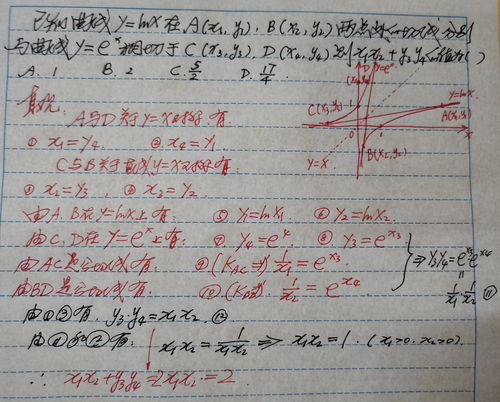 已知曲线 y=lnx 在 A(x₁,y₁), B(x₂,y₂) 两点处的切线分别
与曲线 y=eˣ 相切于 C(x₃,y₃), D(x₄,y₄) 则 x₁x₂+y₃y₄ 的值为( )
A. 1 B. 2 C. 5/2 D. 17/4
D (x₄,y₄) y=eˣ
C(x₃,y₃) y=lnx
A(x₁,y₁)
0 1 x
B(x₂,y₂)
y=x
A与D关于y=x对称有.
① x₁=y₄. ② x₄=y₁
C与B关于直线y=x对称有.
③ x₂=y₃ . ④ x₃=y₂
由A.B在y=lnx上有: ⑤ y₁=lnx₁ ⑥ y₂=lnx₂.
由C,D在y=eˣ上有: ⑦ y₄=eˣ⁴ ⑧ y₃=eˣ³
由AC是公切线有. ⑨ (K_AC=) 1/x₁=eˣ³
由BD是公切线有. ⑩ (K_BD=) 1/x₂=eˣ⁴
⇒ y₃y₄=eˣ³eˣ⁴ = 1/x₁·1/x₂ ⑪
由①③有. y₃·y₄=x₁x₂ ⑫
由⑪和⑫有: x₁x₂=1/(x₁x₂) ⇒ x₁x₂=1. (x₁>0. x₂>0).
∴ x₁x₂+y₃y₄=2x₁x₂=2.